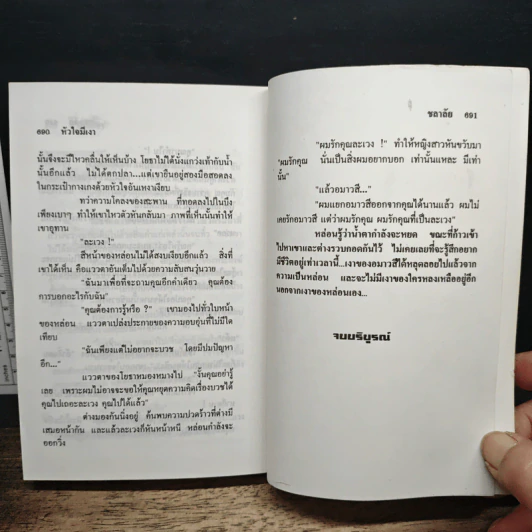 ๖๙๐ หัวใจมีเงา
นั้นจึงจะมีไหวคลื่นให้เห็นบ้าง โยธาไม่ได้นั่งแกว่งเท้ากับน้ำ
นั้นอีกแล้ว ไม่ได้ตกปลา...แต่เขายืนอยู่สองมือสอดลง
ในกระเป๋ากางเกงด้วยหัวใจอันเหงาเงียบ
ทว่าความโคลงของสะพาน ที่ทอดลงไปในบึง
เพียงเบาๆ ทำให้เขาไหวตัวหันกลับมา ภาพที่เห็นนั้นทำให้
เขาอุทาน
"ละเวง !"
สีหน้าของหล่อนไม่ได้สงบเงียบอีกแล้ว สิ่งที่
เขาได้เห็น คือแววตาอันเต็มไปด้วยความสับสนวุ่นวาย
"ฉันมาเพื่อที่จะถามคุณอีกคำเดียว คุณต้อง
การบอกอะไรกับฉัน"
"คุณต้องการรู้หรือ ?" เขามองไปทั่วใบหน้า
ของหล่อน แววตาเปล่งประกายของความอบอุ่นที่ไม่มีใด
เทียบ
"ฉันเพียงแต่ไม่อยากจะบวช โดยมีปมปัญหา
อีก..."
แววตาของโยธาหมองหมางไป "งั้นคุณอย่ารู้
เลย เพราะผมไม่อาจจะขอให้คุณหยุดความคิดเรื่องบวชได้
คุณไปเถอะละเวง คุณไปได้แล้ว"
ต่างมองกันนิ่งอยู่ ค้นพบความปวดร้าวที่ต่างมี
เสมอหน้ากัน และแล้วละเวงก็หันหน้าหนี หล่อนกำลังจะ
ออกวิ่ง
ชลาลัย ๖๙๑
"ผมรักคุณละเวง !" ทำให้หญิงสาวหันขวับมา
"ผมรักคุณ นั่นเป็นสิ่งผมอยากบอก เท่านั้นแหละ มีเท่า
นั้น"
"แล้วอมาวสี..."
"ผมแยกอมาวสีออกจากคุณได้นานแล้ว ผมไม่
เคยรักอมาวสี แต่ว่าผมรักคุณ ผมรักคุณที่เป็นละเวง"
หล่อนรู้ว่าน้ำตากำลังจะหยด ขณะที่ก้าวเข้า
ไปหาเขาและต่างรวบกอดกันไว้ ไม่เคยเลยที่จะรู้สึกอยาก
มีชีวิตอยู่เท่าเวลานี้...เงาของอมาวสีได้หลุดลอยไปแล้วจาก
ความเป็นหล่อน และจะไม่มีเงาของใครหลงเหลืออยู่อีก
นอกจากเงาของหล่อนเอง...
จบบริบูรณ์